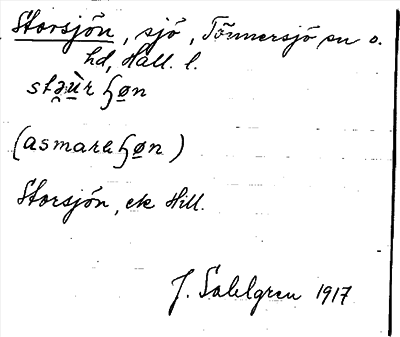 Storsjön, sjö, Tönnersjö sn o.
hd, Hall. l.
stəùr ɧøn
(asmarɛɧøn)
Storsjön, ek Hill.
J. Sahlgren 1917